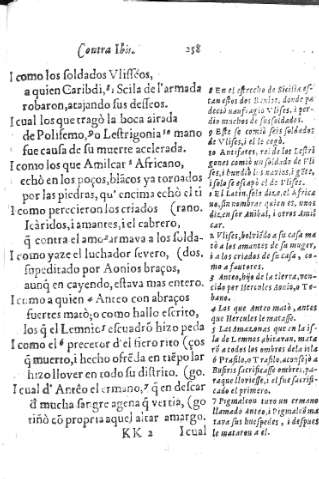 Contra Ibis. 258
I como los soldados Vlisseos,
a quien Caribdi, 8 i Scila de l'armada
robaron, atajando sus desseos.
I cual los que tragò la boca airada
de Polifemo, 9 o Lestrigonia 10 mano
fue causa de su muerte acelerada.
I como los que Amilcar 1 Africano,
echò en los poços, blãcos ya tornados
por las piedras, qu' encima echò el ti
I como perecieron los criados (rano.
Icàridos, i amantes, i el cabrero,
q̃ contra el amo armava a los solda-
I como yaze el luchador severo, (dos.
supeditado por Aonios braços,
aunq̃ en cayendo, estava mas entero.
I como a quien 4 Anteo con abraços
fuertes matò, o como hallo escrito,
los q̃ el Lemnio 5 escuadrõ hizo peda
I como el 6 precetor d'el fiero rito (ços
q̃ muerto, i hecho ofrẽda en tiẽpo lar
hizo llover en todo su distrito. (go.
I cual d' Antẽo el ermano, 7 q̃ en descar
d̃ mucha sangre agena q̃ vertia, (go
tiñò cõ propria aquel altar amargo.
KK 2 I cual
8 En el estrecho de Sicilia es-
tan estos dos Baxios, donde pa
decio naufragio Vlises, i per-
dio muchos de sus soldados.
9 Este se comiò seis soldados
de Vlises, i el le cegò.
10 Antifates, rei de los Lestri
gones comiò un soldado de Vli-
ses, i hundiò los navios, i gẽte,
i solo se escapò el de Vlises.
1 El Latin solo dize, el Africa
no, sin nombrar quien es. unos
dizen ser Anibal, i otros Amil
car.
2 Vlises, bolviẽdo a su casa ma
tò a los amantes de su muger,
i a los criados de su casa, co-
mo a fautores.
3 Anteo, hijo de la tierra, ven-
cido por Hercules Aonio, o Te-
bano.
4 Las que Anteo matò, antes
que Hercules le matasse.
5 Las Amazonas que en la is-
la de Lemnos abitavan, mata
rõ a todos los ombres dela isla
6 Trasilo, o Trasio, aconsejò a
Busiris sacrificasse ombres, pa-
raque lloviesse, i el fue sacrifi-
cado el primero.
7 Pigmaleon tuvo un ermano
llamado Anteo, i Pigmaleõ ma
tava sus huespedes, i despues
le mataron a el.